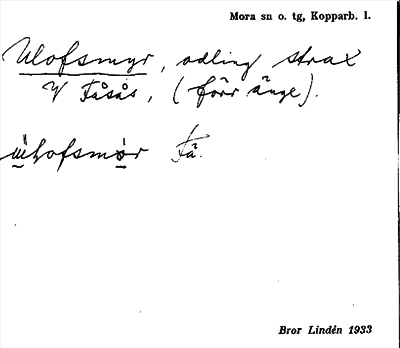 Mora sn o. tg, Kopparb. l.
Ulofsmyr, odling strax
V Fåsås, (förr änge).
Få.
Bror Lindén 1933